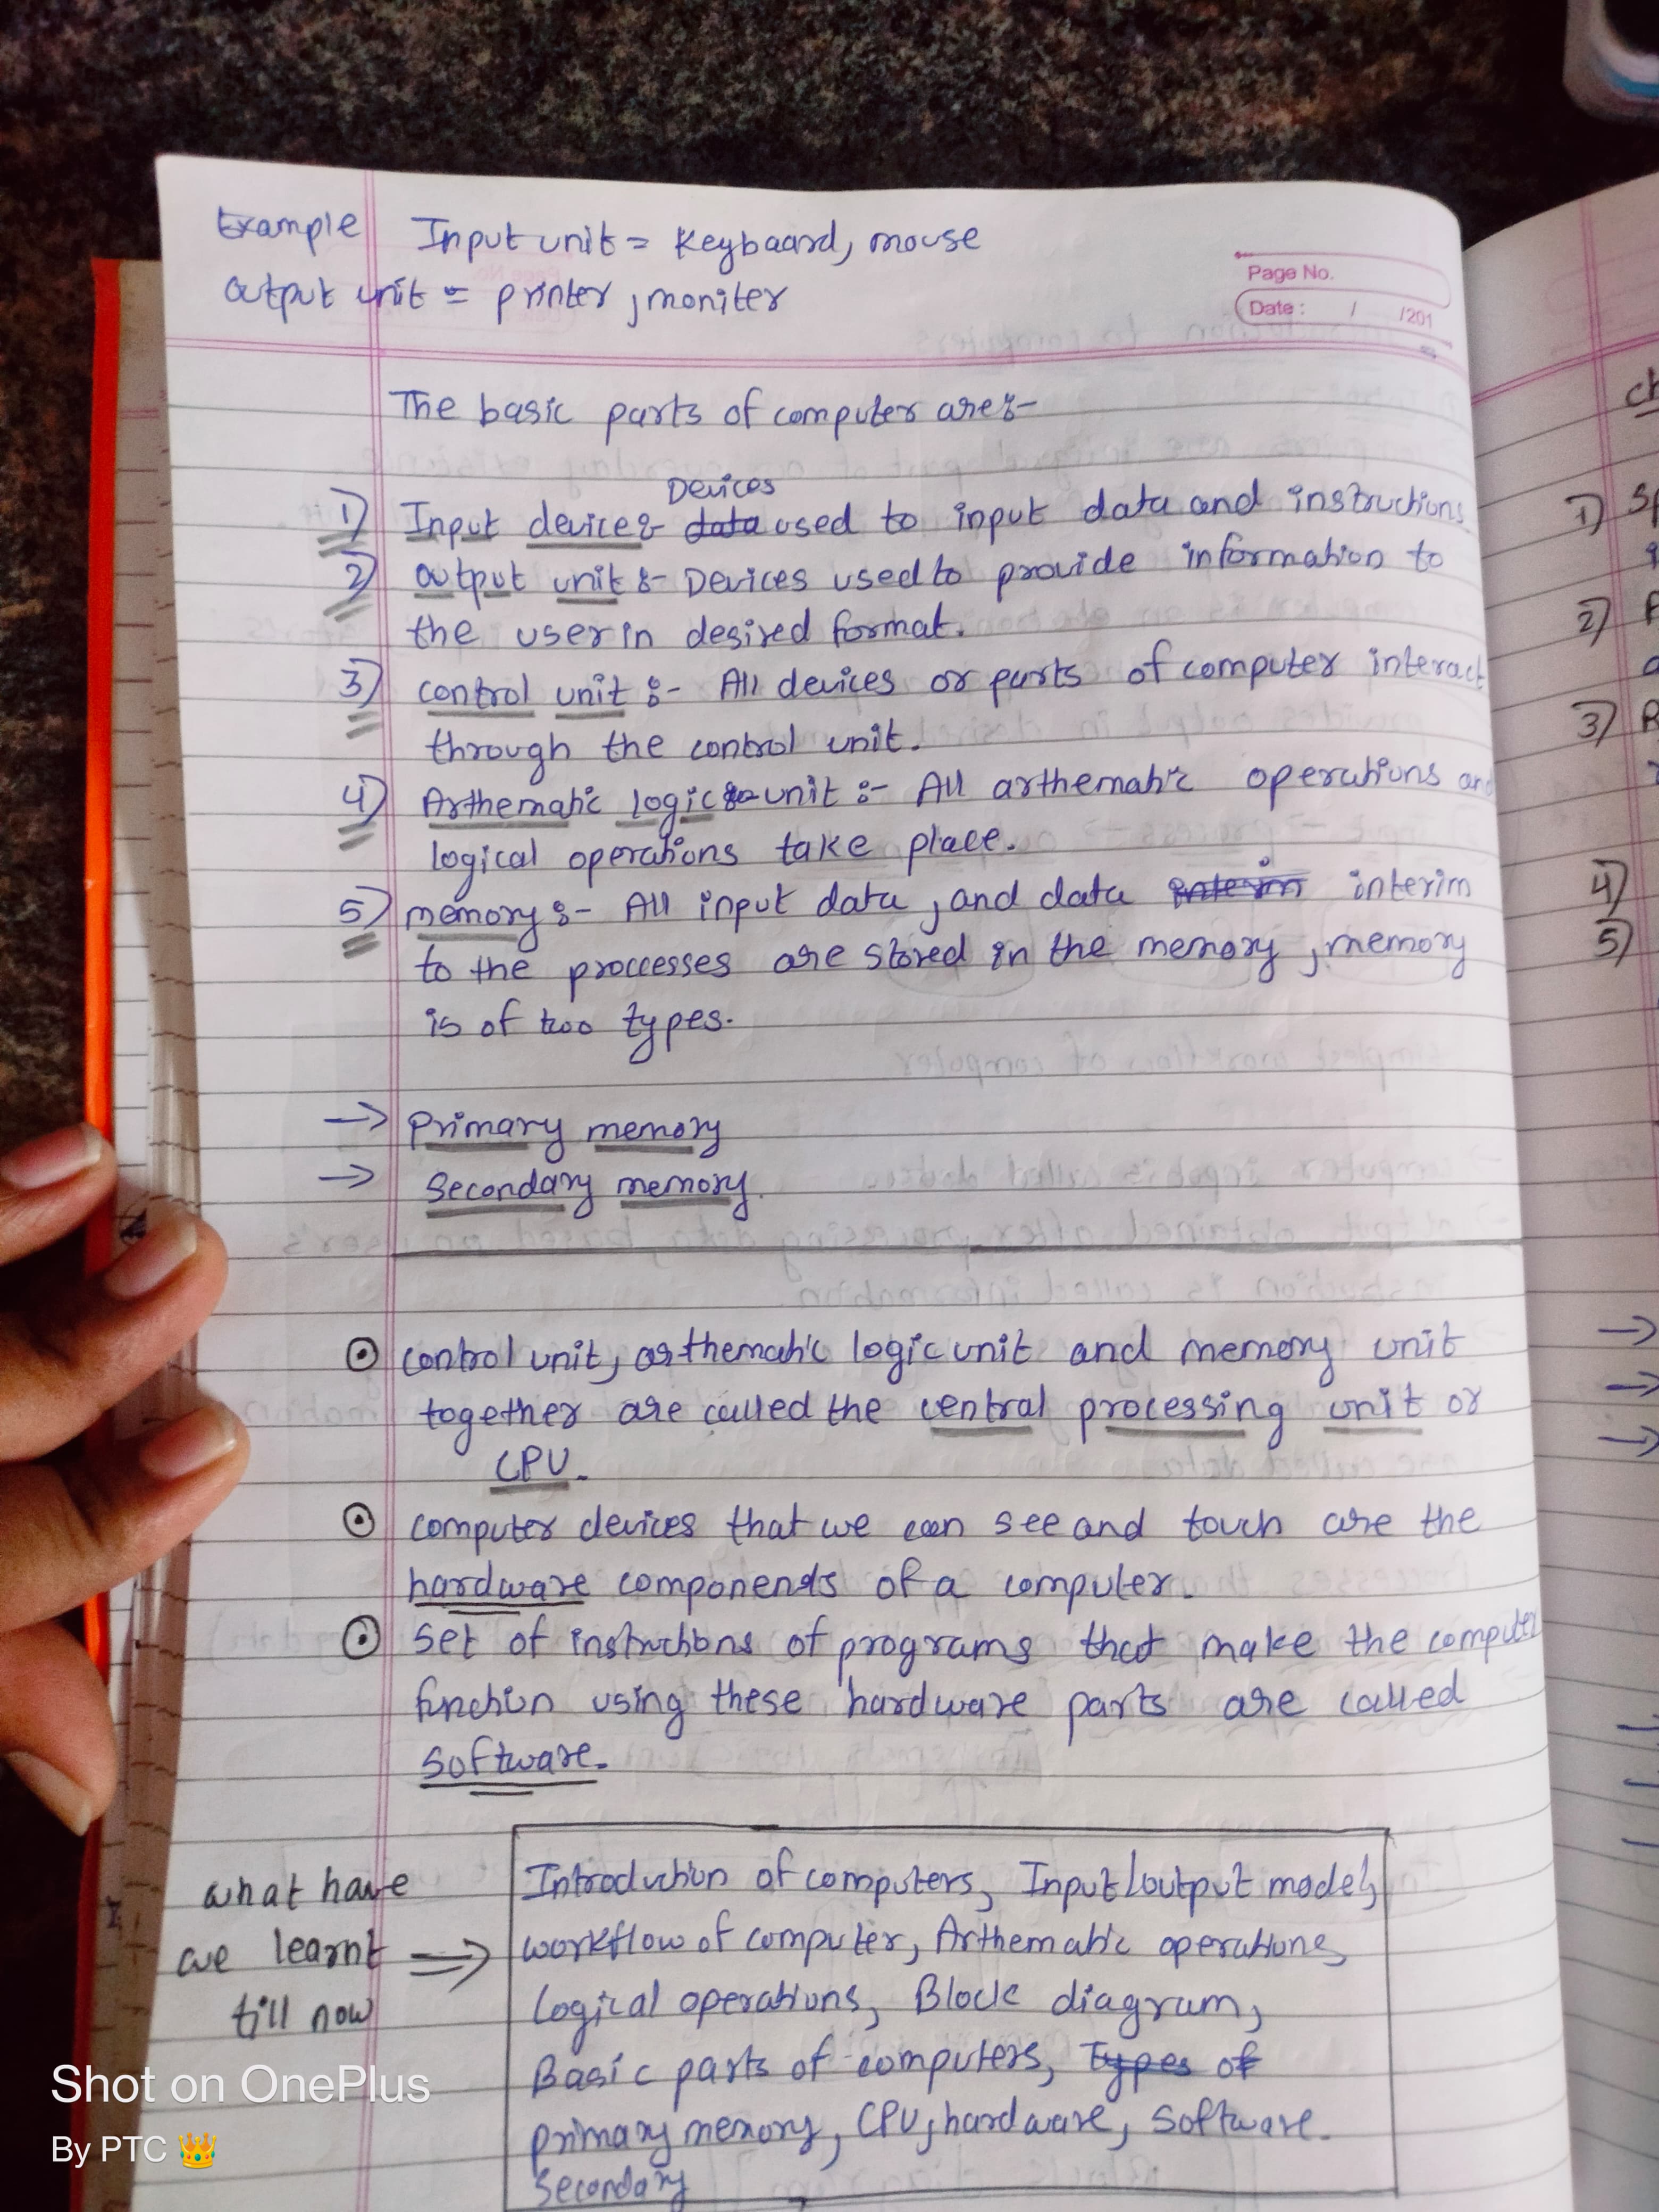 Example Input unit = Keybaard, mouse
Output unit = printer, moniter
Page No.
Date : / /201
The basic parts of computer are:-
Devices
1) Input device:- data used to input data and instructions
2) output unit :- Devices used to provide information to
the user in desired format.
3) control unit :- All devices or parts of computer interact
through the control unit.
4) Arthematic logic unit :- All arthematic operations and
logical operations take place.
5) memory :- All input data, and data interim interim
to the proccesses are stored in the memory, memory
is of two types.
→ Primary memory
→ Secondary memory.
⊙ control unit, arthematic logic unit and memory unit
together are called the central processing unit or
CPU.
⊙ computer devices that we can see and touch are the
hardware components of a computer.
⊙ set of instructions of programs that make the computer
function using these hardware parts are called
software.
what have
we learnt ⇒
till now
Introduction of computers, Input/output model,
workflow of computer, Arthematic operations,
Logical operations, Block diagram,
Basic parts of computers, Types of
primary memory, CPU, hardware, software.
Secondary
ch
1) Sp
2)
3)
4)
5)
→
→
→
Shot on OnePlus
By PTC 👑